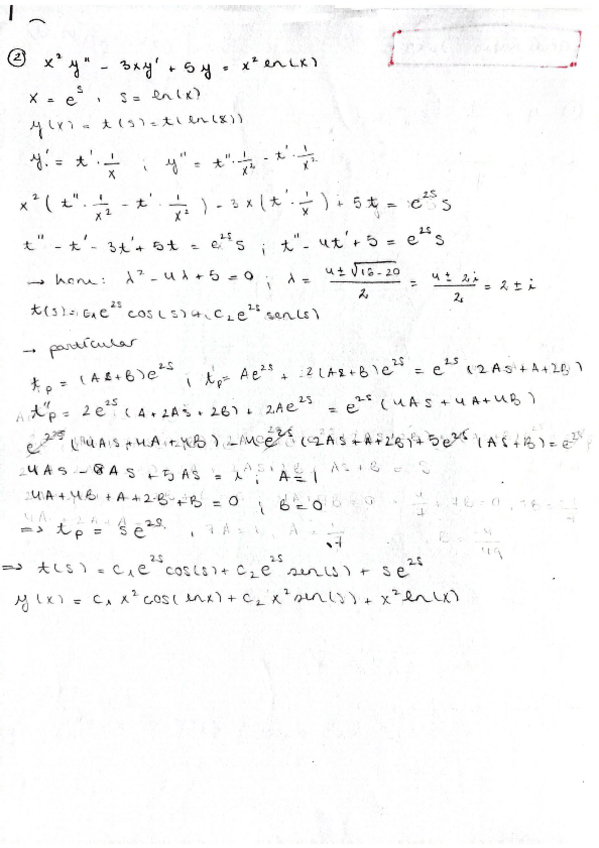 ② x² y'' - 3xy' + 5y = x² en(x)
x = e^s , s = en(x)
y(x) = t(s) = t(en(x))
y' = t' · 1/x ; y'' = t'' · 1/x² - t' · 1/x²
x² (t'' · 1/x² - t' · 1/x²) - 3x (t' · 1/x) + 5t = e^2s s
t'' - t' - 3t' + 5t = e^2s s ; t'' - 4t' + 5 = e^2s s
→ hom: λ² - 4λ + 5 = 0 ; λ = (4 ± √(16-20))/2 = (4 ± 2i)/2 = 2 ± i
t(s) = c₁e^2s cos(s) + c₂e^2s sen(s)
→ particular
t_p = (As+B)e^2s ; t'_p = Ae^2s + 2(As+B)e^2s = e^2s (2As+A+2B)
t''_p = 2e^2s (A+2As+2B) + 2Ae^2s = e^2s (4As+4A+4B)
e^2s (4As+4A+4B) - 4e^2s (2As+A+2B) + 5e^2s (As+B) = e^2s
4As - 8As + 5As = ; A = 1
4A+4B+A+2B+B = 0 ; B = 0
=> t_p = se^2s
=> t(s) = c₁e^2s cos(s) + c₂e^2s sen(s) + se^2s
y(x) = c₁ x² cos(enx) + c₂ x² sen(s) + x² en(x)